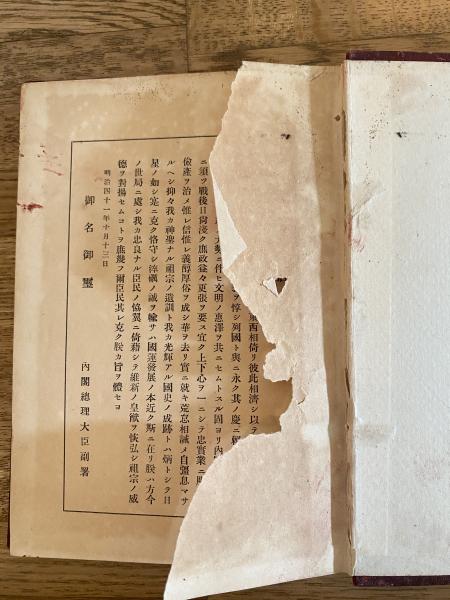 東西相倚リ彼此相濟シ以テ
ヲ惇シ列國ト與ニ永ク其ノ慶ニ
大勢ニ伴ヒ文明ノ惠澤ヲ共ニセムトスル固ヨリ內
ニ須ツ戰後日尙淺ク庶政益々更張ヲ要ス宜ク上下心ヲ一ニシテ忠實業ニ
儉產ヲ治メ惟レ信惟レ義醇厚俗ヲ成シ華ヲ去リ實ニ就キ荒怠相誡メ自彊息マサ
ルヘシ抑々我カ神聖ナル祖宗ノ遺訓ト我カ光輝アル國史ノ成跡トハ炳トシテ日
星ノ如シ寔ニ克ク恪守シ淬礪ノ誠ヲ輸サハ國運發展ノ本近ク斯ニ在リ朕ハ方今
ノ世局ニ處シ我カ忠良ナル臣民ノ協翼ニ倚藉シテ維新ノ皇猷ヲ恢弘シ祖宗ノ威
德ヲ對揚セムコトヲ庶幾フ爾臣民其レ克ク朕カ旨ヲ體セヨ
明治四十一年十月十三日
御名御璽
內閣總理大臣副署